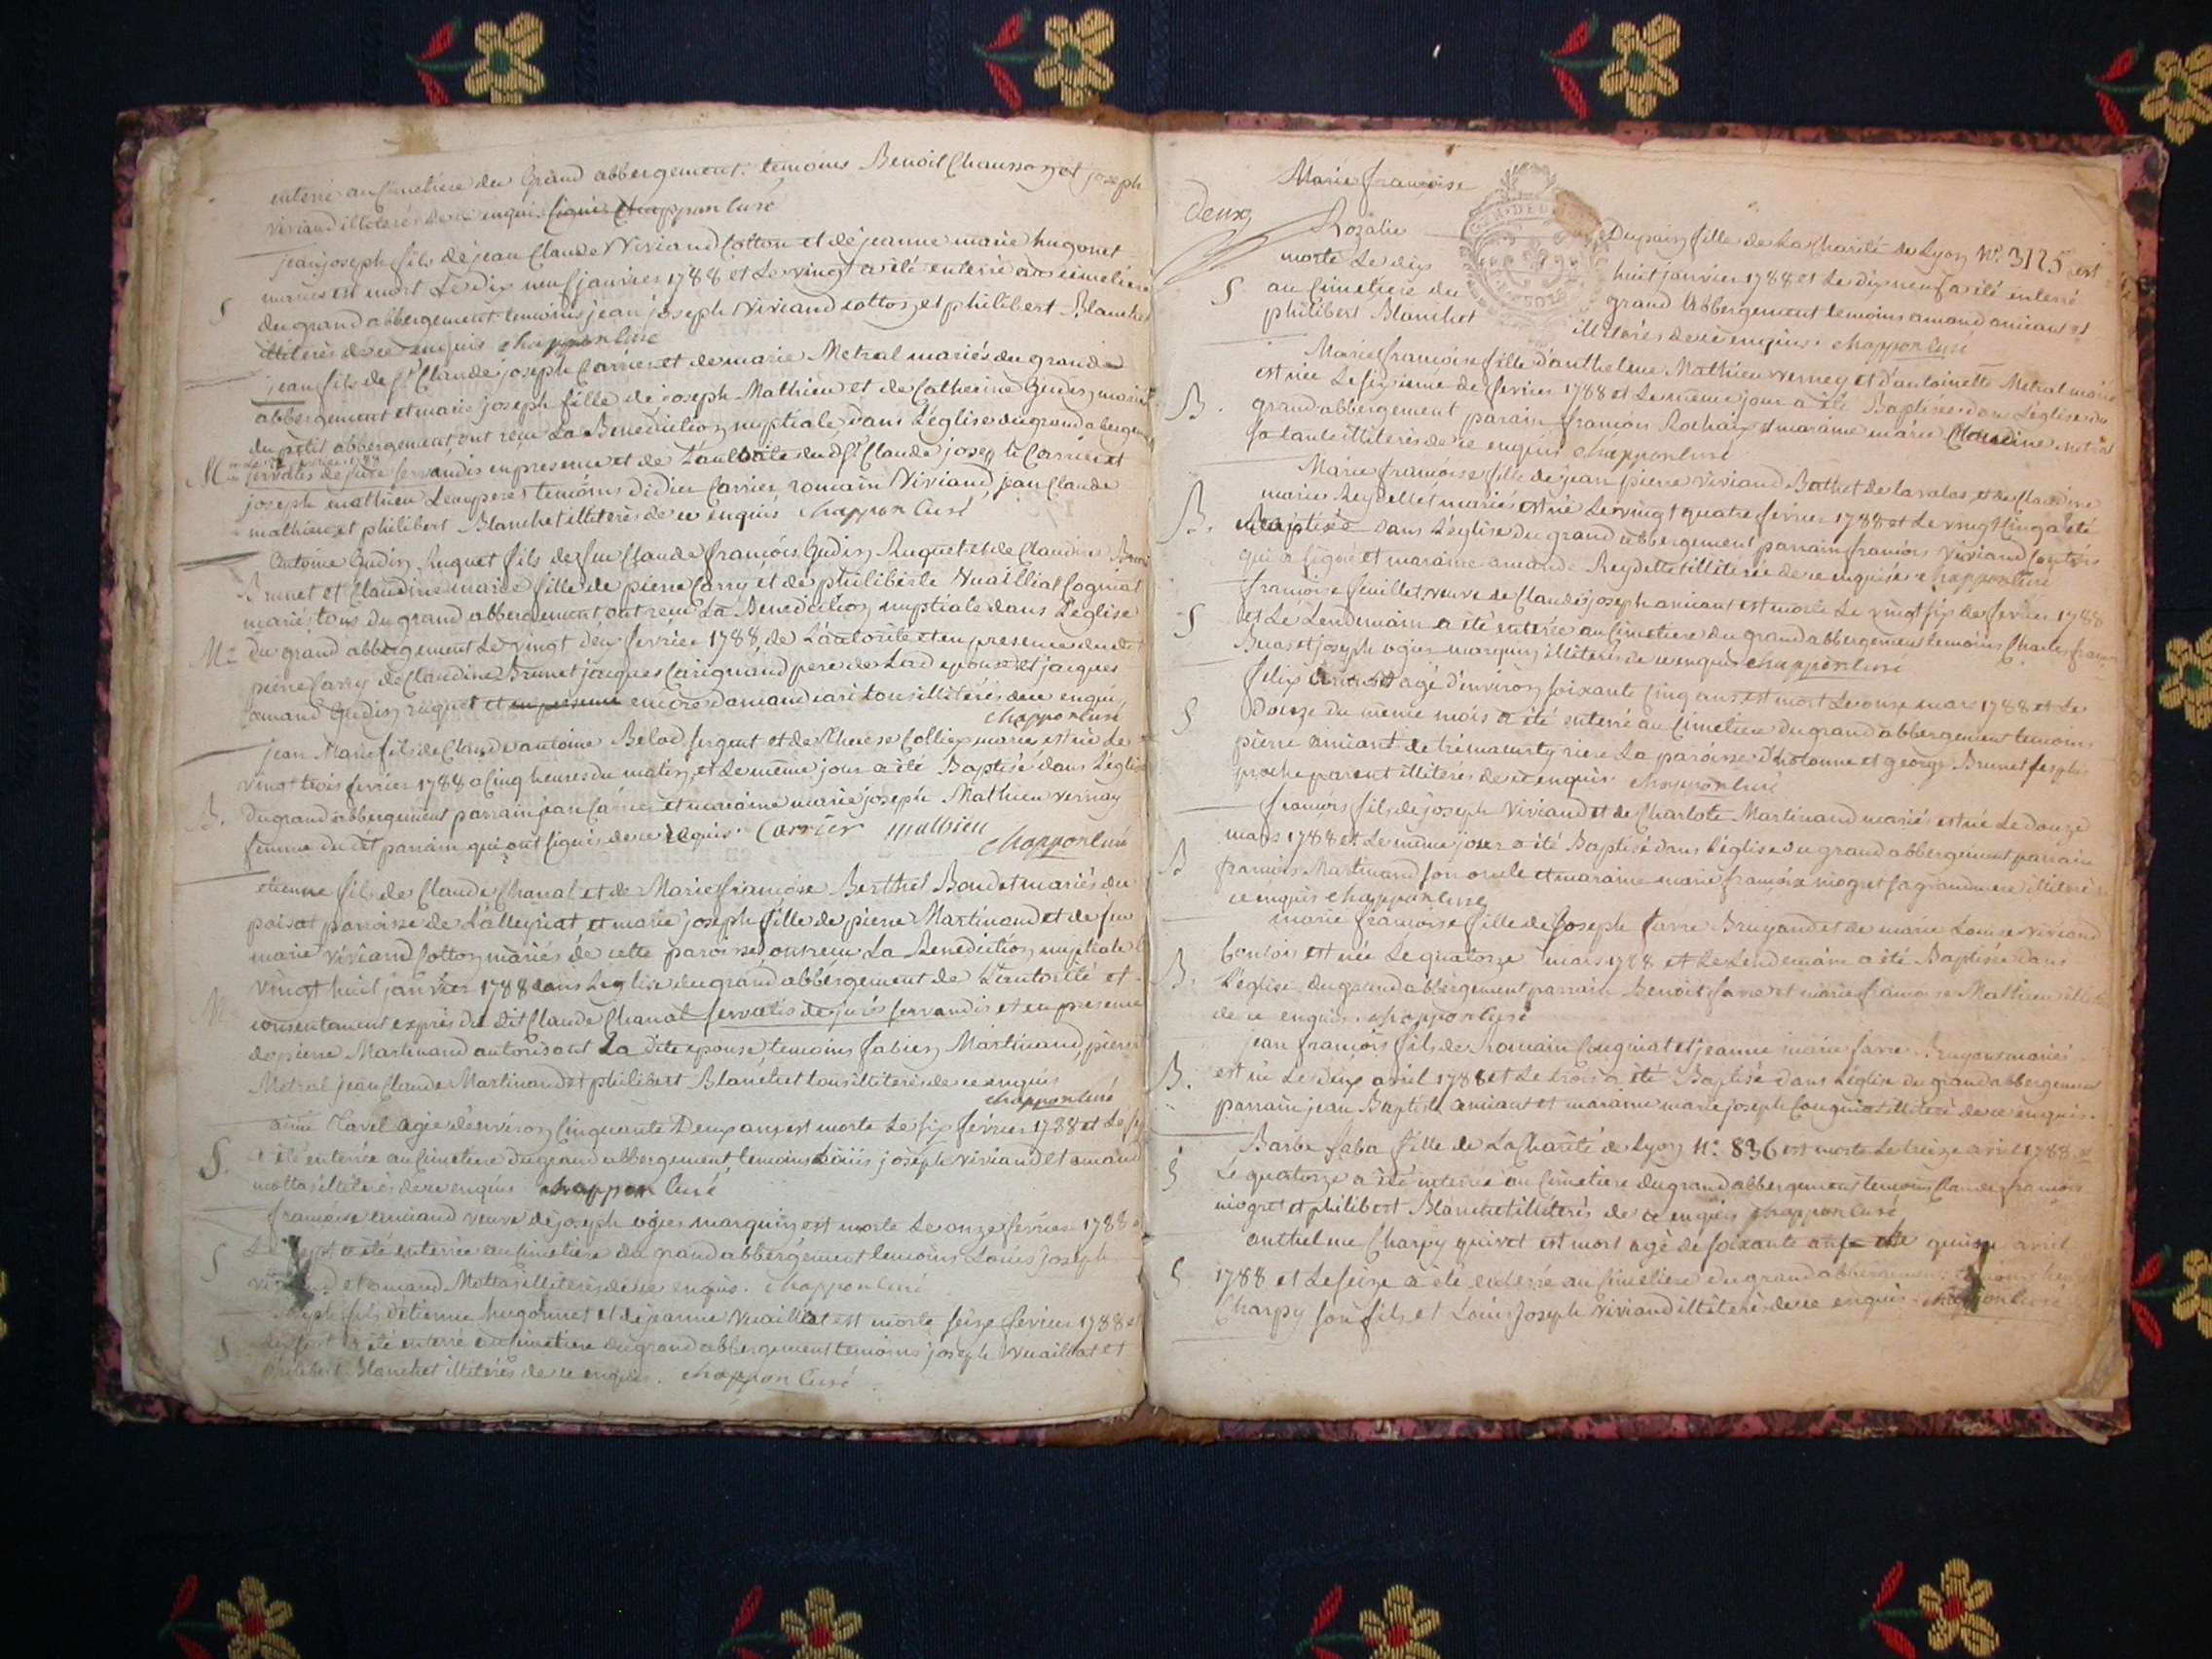 enterré au cimetiere du Grand abbergement. temoins Benoit Chaussonget joseph
viviand illiterés de ce enquis. signé Chappon Curé
jean joseph fils de jean Claude Viviand Cotton et de jeanne marie hugonet
mariés est mort Le dix neuf janvier 1788 et Le vingt a été enterré au cimetiere
S du grand abbergement temoins jean joseph viviand cotton et philibert Blanchet
illiterés de ce enquis Chappon Curé
jean fils de Sr Claude joseph Carrier et de marie Metral mariés du grand
abbergement et marie joseph fille de joseph Mathieu et de Catherine Gudin mariés
du petit abbergement ont reçu La Benediction nuptiale dans L'église du grand abbergement
M servatis de jure servandis en presence et de L'autorité dud Sr Claude joseph Carrier et
joseph mathieu Leurs peres temoins didier Carrier romain Viviand jean Claude
mathieu et philibert Blanchet illiterés de ce enquis Chappon Curé
Antoine Gudin Ruquet fils de feu Claude françois Gudin Ruquet et de Claudine
Brunet et Claudine marie fille de pierre Carry et de philiberte Vuailliat Cognat
mariés tous du grand abbergement ont reçu La Benediction nuptiale dans L'église
Mr du grand abbergement Le vingt deux fevrier 1788 de L'autorité et en presence dudit
pierre Carry de Claudine Brunet jacques Carignand pere de La d epouse et jacques
amand Gudin ruquet et en presence encore damand cari tous illiterés de ce enquis
Chappon Curé
jean Marie fils de Claude antoine Belod sergent et de Therese Collier mariés est né Le
vingt trois fevrier 1788 a Cinq heures du matin et Le même jour a été Baptisé dans L'église
B. du grand abbergement parrain jean Carrier et maraine marie joseph Mathieu vernay
femme du dit parrain qui ont signés de ce requis. Carrier Mathieu
Chappon Curé
etienne fils de Claude Chanal et de Marie françoise Berthet Bondet mariés du
poisat parroisse de Lalleyriat et marie joseph fille de pierre Martinand et de feu
marie viviand Cotton mariés de cette paroisse ont reçu La Benediction nuptiale
vingt huit janvier 1788 dans L'église du grand abbergement de L'autorité et
consentement exprés du dit Claude Chanal servatis de jure servandis et en presence
de pierre Martinand autorisant La dite epouse temoins fabien Martinand pierre
Metral jean Claude Martinand et philibert Blanchet tous illiterés de ce enquis
Chappon Curé
aimé Tavel agée d'environ Cinquante Deux ans est morte Le six fevrier 1788 et Le sept
S. a été enterrée au cimetiere du grand abbergement temoins Louis joseph viviand et amand
mottas illiterés de ce enquis Chappon Curé
françoise amiand veuve de joseph ogier marquin est morte Le onze fevrier 1788 et
S Le a été enterrée au cimetiere du grand abbergement temoins Louis joseph
viviand et amand Mottas illiterés de ce enquis. Chappon Curé
joseph fils d'étienne hugonnet et de jeanne Vuailliat est morte seize fevrier 1788 et
S Le sept a été enterré au cimetiere du grand abbergement temoins joseph Vuailliat et
philibert Blanchet illiterés de ce enquis. Chappon Curé
deux
Marie françoise
Rozalie Dupain fille de La Charité de Lyon N° 3125 est
morte Le dix huit janvier 1788 et Le dix neuf a été enterré
S au Cimetiere du grand Abbergement temoins amand amiant et
philibert Blanchet illiterés de ce enquis. Chappon Curé
Marie françoise fille d'anthelme Mathieu verney et d'antoinette Metral mariés
est née Le sixieme de fevrier 1788 et Le même jour a été Baptisée dans L'église du
B. grand abbergement parain françois Rochaix et maraine marie Claudine metral
sa tante illiterés de ce enquis Chappon Curé
Marie françoise fille de jean pierre Viviand Berthet de lavalas et de Claudine
marie Reydellet mariés est née Le vingt quatre fevrier 1788 et Le vingt Cinq a été
B. Baptisée dans L'église du grand abbergement parrain françois Viviand
qui a signé et maraine amande Reydellet illiterée de ce enquise Chappon Curé
françoise feuillet veuve de Claude joseph amiant est morte Le vingt six de fevrier 1788
S et Le Lendemain a été enterée au cimetiere du grand abbergement temoins Charles françois
Buas et joseph ogier marquin illiterés de ce enquis Chappon Curé
felix agé d'environ soixante Cinq ans est mort Le onze mars 1788 et Le
S Douze du même mois a été enterré au Cimetiere du grand abbergement temoins
pierre amiant de trémanerty riere La paroisse d'hotonne et george Brunet ses plus
proche parent illiterés de ce enquis Chappon Curé
françois fils de joseph Viviand et de Charlote Martinand mariés est né Le douze
mars 1788 et Le même jour a été Baptisé dans L'église du grand abbergement parrain
B françois Martinand son oncle et maraine marie françoise niogret sa grandmere illiterés
ce enquis Chappon Curé
Marie françoise fille de joseph favre Bruyand et de marie Louise viviand
Contoir est née Le quatorze mars 1788 et Le Lendemain a été Baptisée dans
B. L'église du grand abbergement parrain Benoit favre et marie françoise Mathieu
de ce enquis. Chappon Curé
jean françois fils de Romain Cougniat et jeanne marie favre Bruyand mariés
B. est né Le deux avril 1788 et Le trois a été Baptisé dans L'église du grand abbergement
parrain jean Baptiste amiant et maraine marie joseph Cougniat illiterés de ce enquis.
Barbe faba fille de La Charité de Lyon N° 836 est morte Le treize avril 1788 et
S Le quatorze a été enterrée au Cimetiere du grand abbergement temoins Claude françois
niogret et philibert Blanchet illiterés de ce enquis Chappon Curé
anthelme Charpy quivet est mort agé de soixante ans Le quinze avril
S 1788 et Le seize a été enterré au Cimetiere du grand abbergement temoins
Charpy son fils et Louis joseph viviand illiterés de ce enquis Chappon Curé